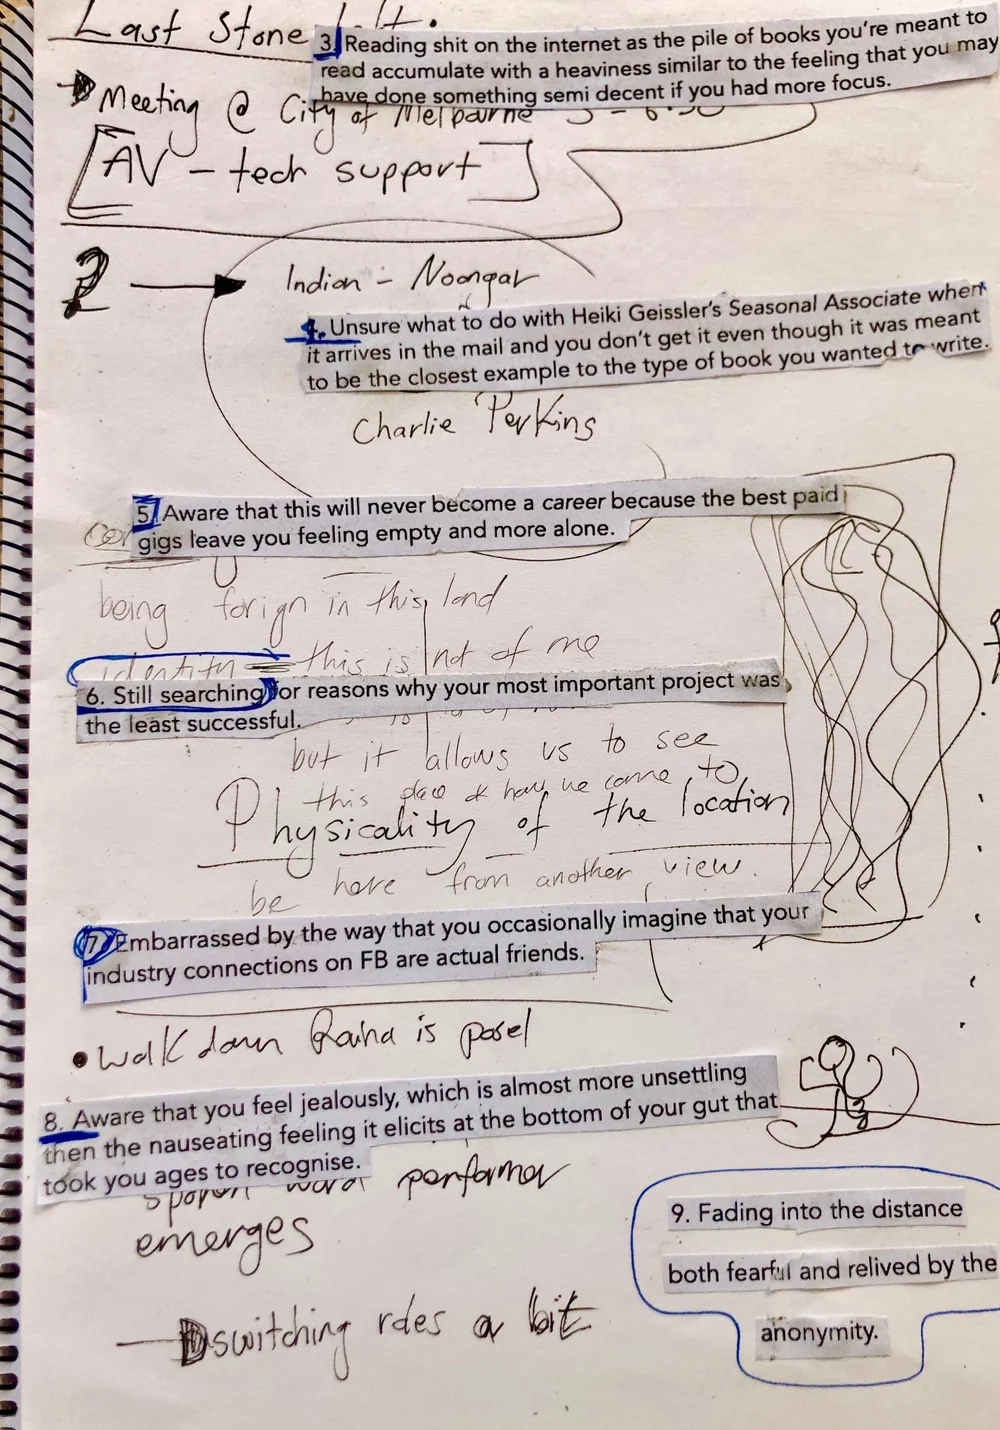 Last Stone
3. Reading shit on the internet as the pile of books you're meant to
read accumulate with a heaviness similar to the feeling that you may
have done something semi decent if you had more focus.
Meeting @ City of Melbourne
[AV - tech support]
2 → Indian - Noongar
4. Unsure what to do with Heiki Geissler's Seasonal Associate when
it arrives in the mail and you don't get it even though it was meant
to be the closest example to the type of book you wanted to write.
Charlie Perkins
5. Aware that this will never become a career because the best paid
gigs leave you feeling empty and more alone.
being forign in this land
identity = this is not of me
6. Still searching for reasons why your most important project was
the least successful.
but it allows us to see
this place & how we come to
Physicality of the location
be here from another view.
7. Embarrassed by the way that you occasionally imagine that your
industry connections on FB are actual friends.
• walk down is
8. Aware that you feel jealously, which is almost more unsettling
then the nauseating feeling it elicits at the bottom of your gut that
took you ages to recognise.
word performer
emerges
9. Fading into the distance
both fearful and relived by the
anonymity.
switching roles a bit